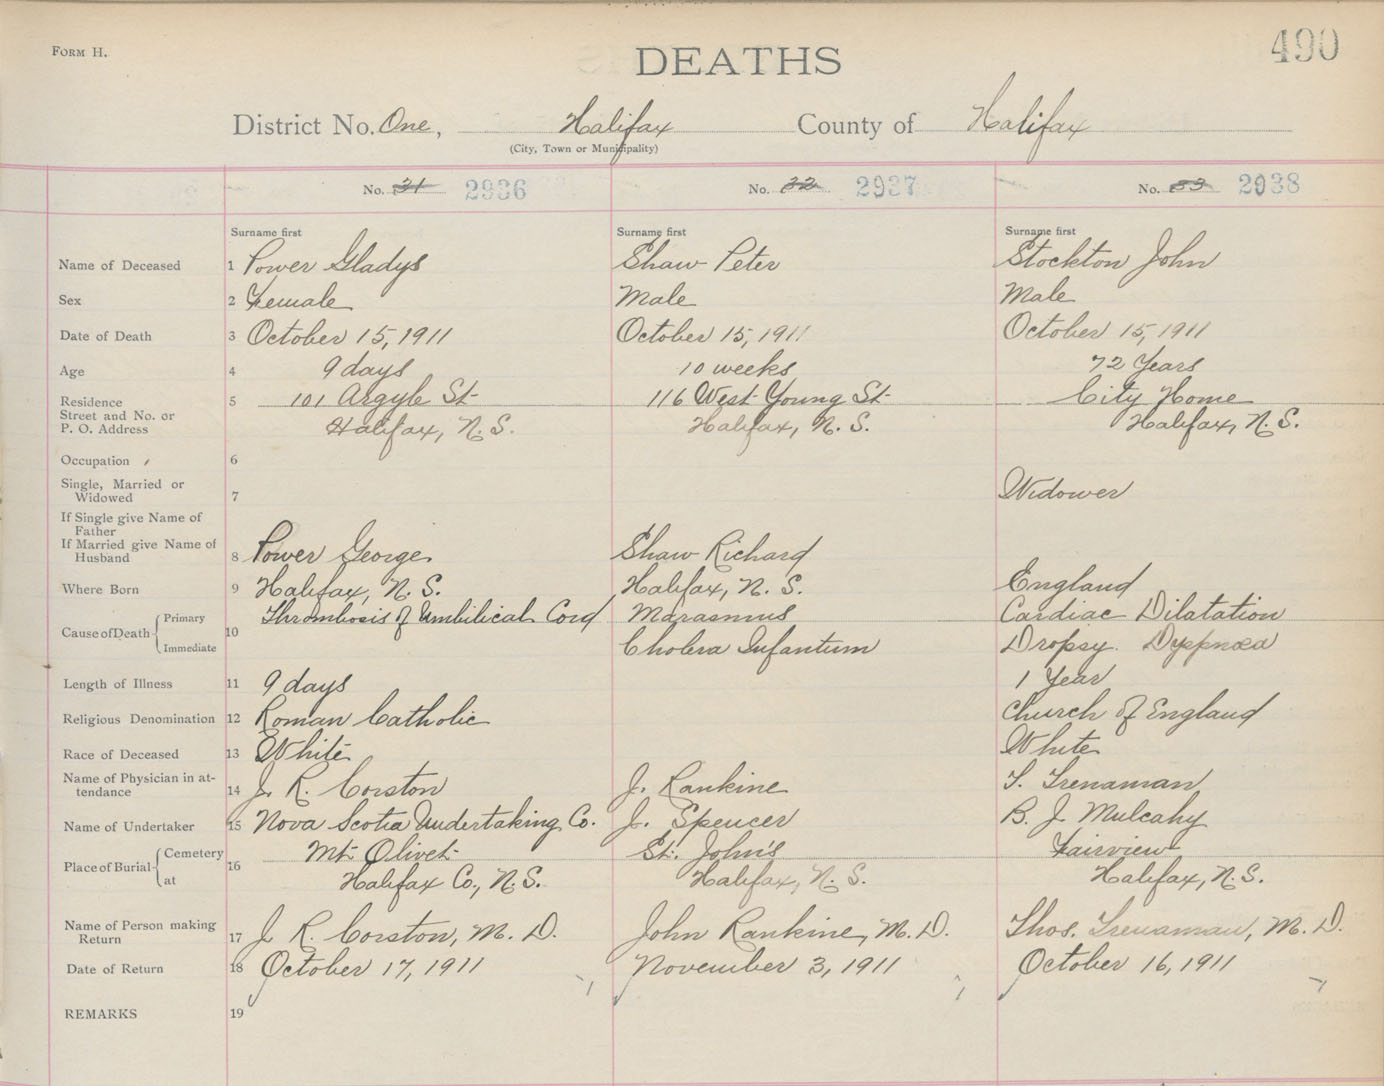 FORM H.
DEATHS
490
District No. One, Halifax County of Halifax
(City, Town or Municipality)
No. 31 2936 No. 32 2937 No. 33 2938
Surname first Surname first Surname first
Name of Deceased 1 Power Gladys Shaw Peter Stockton John
Sex 2 Female Male Male
Date of Death 3 October 15, 1911 October 15, 1911 October 15, 1911
Age 4 9 days 10 weeks 72 Years
Residence 5 101 Argyle St 116 West Young St City Home
Street and No. or
P. O. Address Halifax, N.S. Halifax, N.S. Halifax, N.S.
Occupation 6
Single, Married or
Widowed 7 Widower
If Single give Name of
Father
If Married give Name of
Husband 8 Power George Shaw Richard
Where Born 9 Halifax, N.S. Halifax, N.S. England
Primary Thrombosis of Umbilical Cord Marasmus Cardiac Dilatation
Cause of Death 10
Immediate Cholera Infantum Dropsy. Dyspnœa
Length of Illness 11 9 days 1 Year
Religious Denomination 12 Roman Catholic Church of England
Race of Deceased 13 White White
Name of Physician in at-
tendance 14 J. R. Corston J. Rankine T. Trenaman
Name of Undertaker 15 Nova Scotia Undertaking Co. J. Spencer B. J. Mulcahy
Cemetery Mt Olivet St. John's Fairview
Place of Burial 16
at Halifax Co., N.S. Halifax, N.S. Halifax, N.S.
Name of Person making
Return 17 J. R. Corston, M.D. John Rankine, M.D. Thos. Trenaman, M.D.
Date of Return 18 October 17, 1911 November 3, 1911 October 16, 1911
REMARKS 19